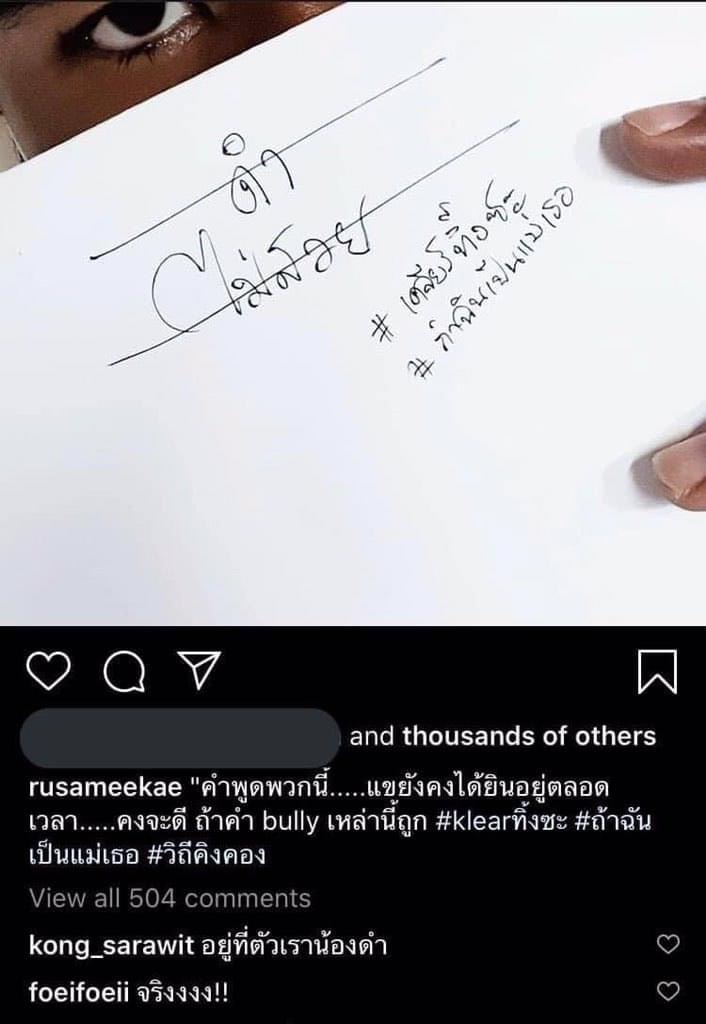 ดำ
ไม่สวย
# เคลียร์ทิ้งซะ
# ถ้าฉันเป็นแม่เธอ
and thousands of others
rusameekae "คำพูดพวกนี้.....แขยังคงได้ยินอยู่ตลอด
เวลา.....คงจะดี ถ้าคำ bully เหล่านี้ถูก #klearทิ้งซะ #ถ้าฉัน
เป็นแม่เธอ #วิถีคิงคอง
View all 504 comments
kong_sarawit อยู่ที่ตัวเราน้องดำ
foeifoeii จริงงงง!!